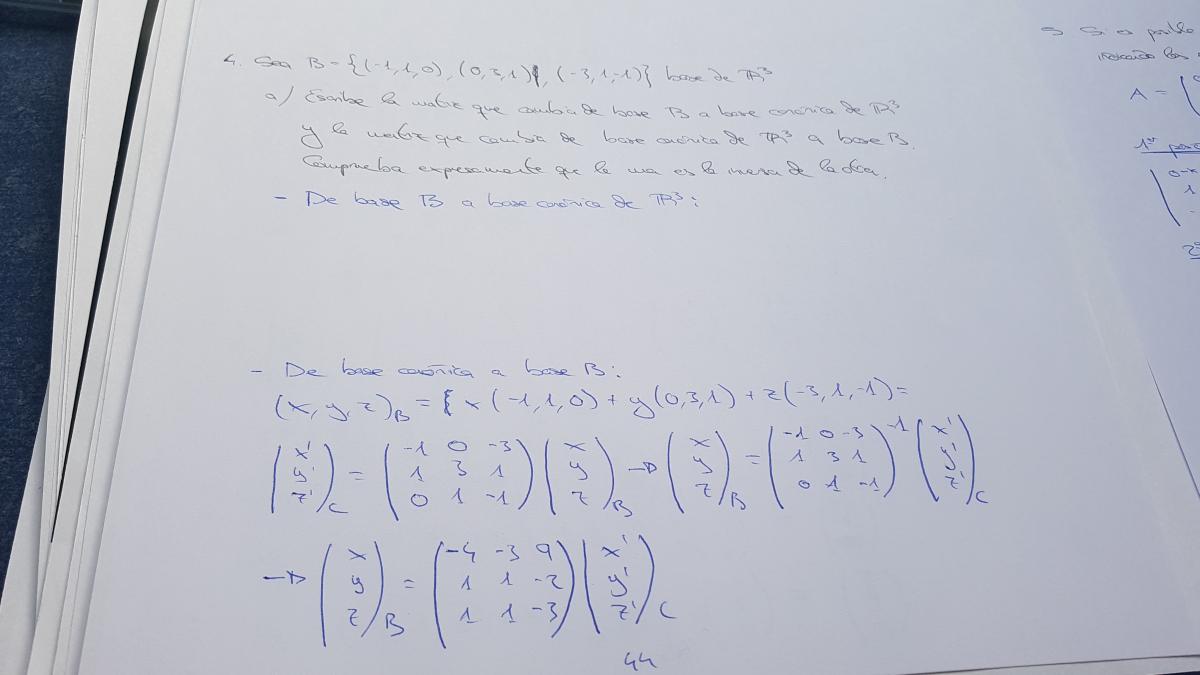 4. Sea B = {(-1,1,0), (0,3,1), (-3,1,-1)} base de ℝ³
a/ Escribe la matriz que cambia de base B a base canónica de ℝ³
y la matriz que cambia de base canónica de ℝ³ a base B.
Comprueba expresamente que la una es la inversa de la otra.
- De base B a base canónica de ℝ³:
- De base canónica a base B:
(x, y, z)_B = x(-1,1,0) + y(0,3,1) + z(-3,1,-1) =
(x' y' z')_C = (-1 0 -3 / 1 3 1 / 0 1 -1) (x y z)_B → (x y z)_B = (-1 0 -3 / 1 3 1 / 0 1 -1)^-1 (x' y' z')_C
→ (x y z)_B = (-4 -3 9 / 1 1 -2 / 1 1 -3) (x' y' z')_C
44
5 Si es posible
A = (
1º
0-x
1
-
2º